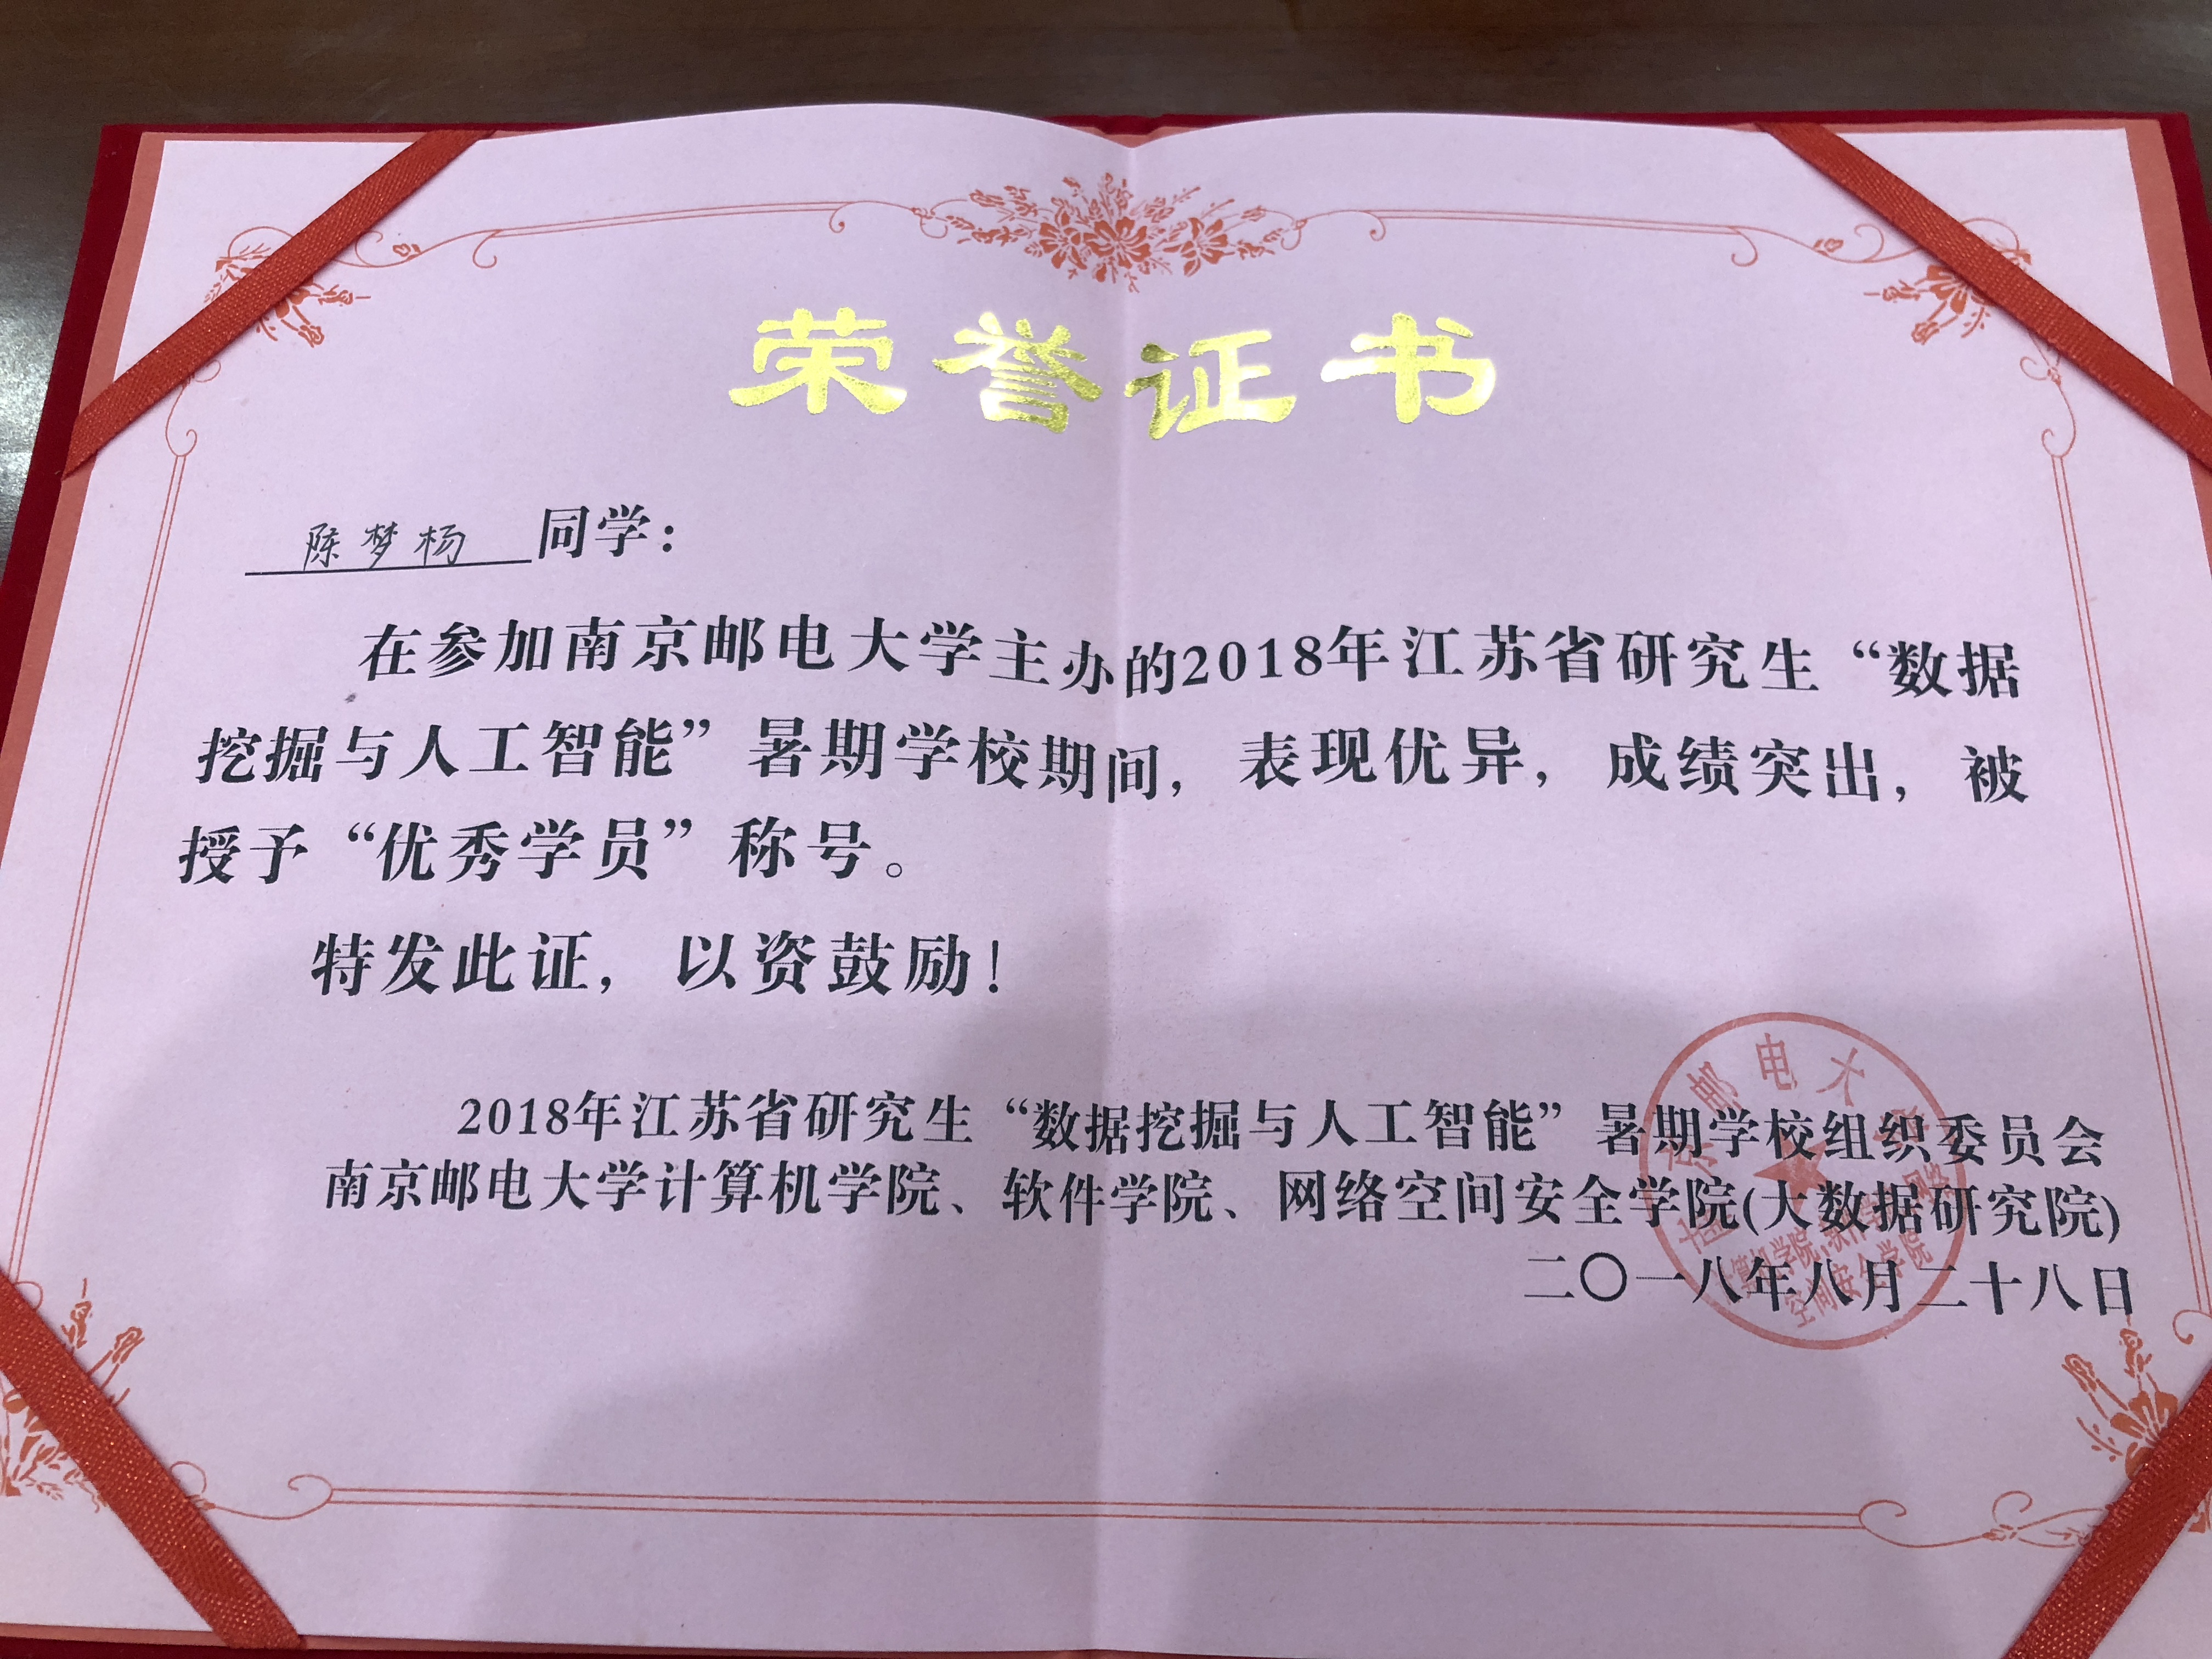 荣誉证书
陈梦杨 同学：
在参加南京邮电大学主办的2018年江苏省研究生“数据
挖掘与人工智能”暑期学校期间，表现优异，成绩突出，被
授予“优秀学员”称号。
特发此证，以资鼓励！
2018年江苏省研究生“数据挖掘与人工智能”暑期学校组织委员会
南京邮电大学计算机学院、软件学院、网络空间安全学院(大数据研究院)
二〇一八年八月二十八日
南京邮电大学
空间安全学院